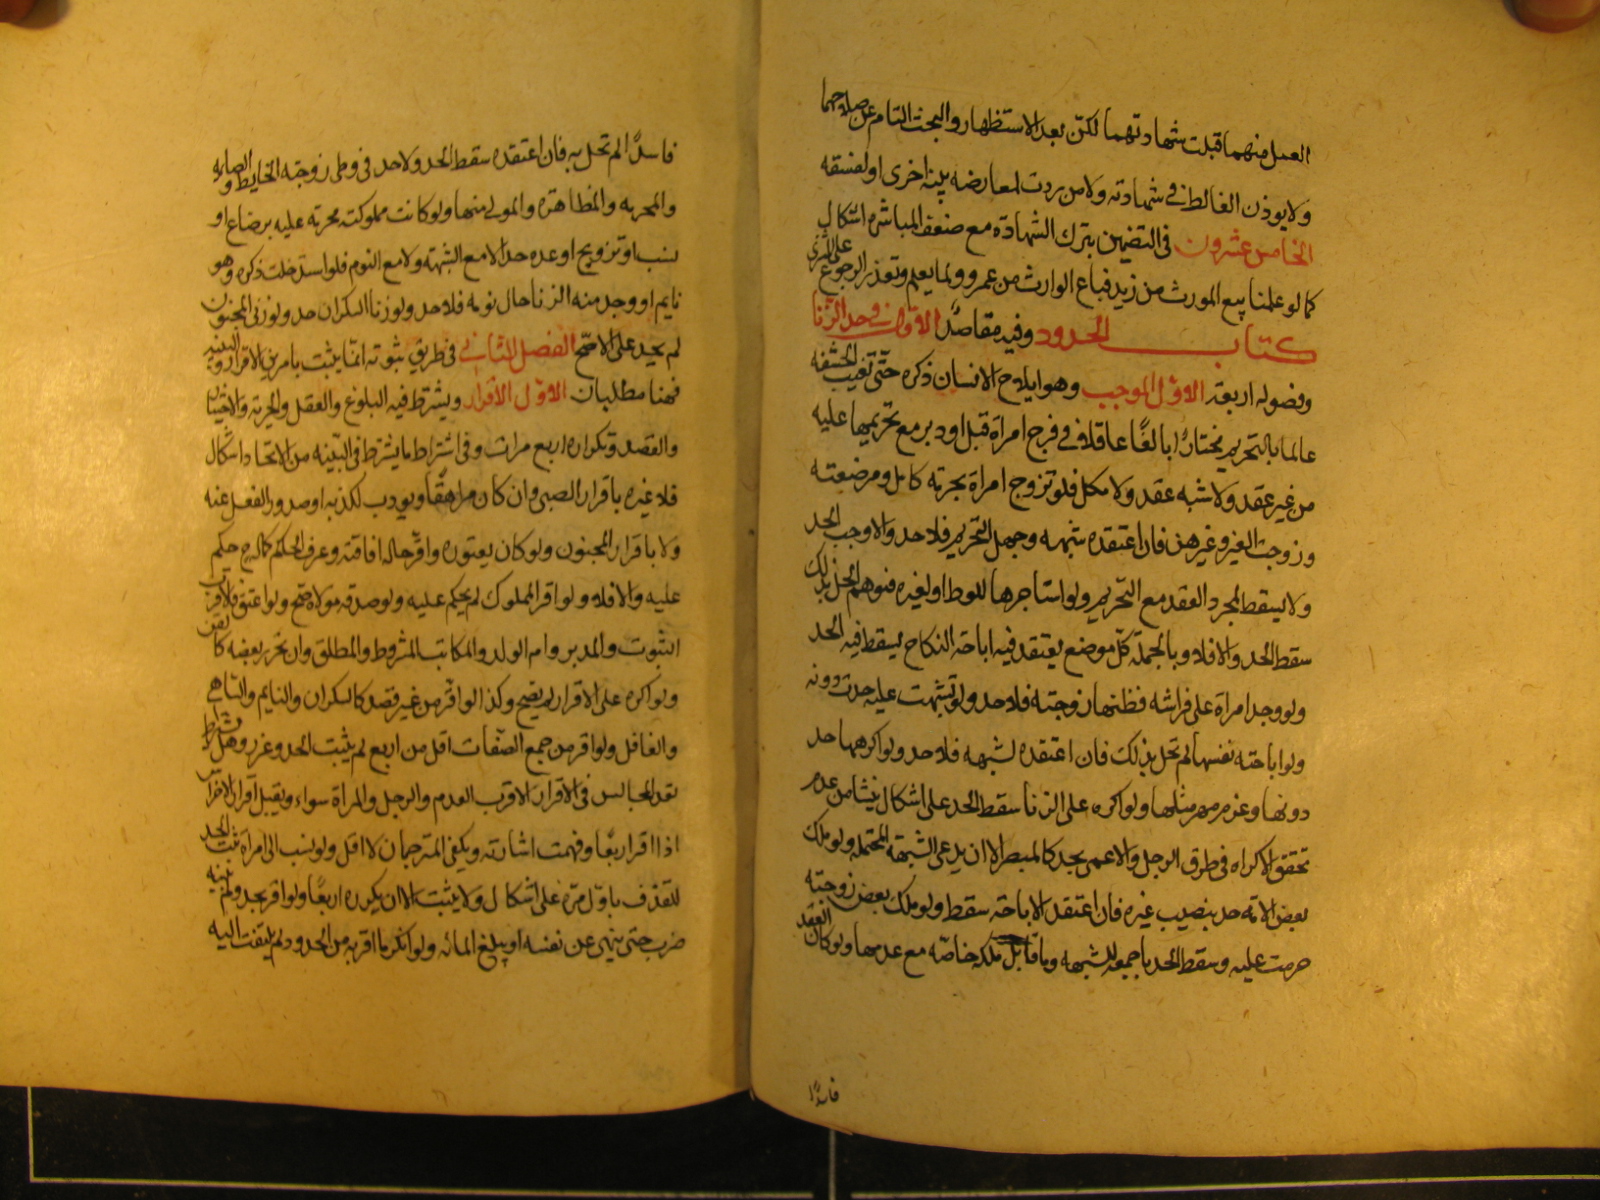 العدل منهما قبلت شهادتهما لكن بعد الاستظهار والبحث التام عن صلاحهما
ولا يوذن الغالط في شهادته ولا من ردت لمعارضه بينه اخرى او لفسقه
الخامس عشرون في التضمين بترك الشهادة مع ضعف المباشره اشكال
كما لو علمنا ببيع المورث من زيد فباع الوارث من عمرو ولما يعلم وتعذر الرجوع على المشتري
كتاب الحدود وفيه مقاصد الاول في حد الزنا
وفصوله اربعة الاول الموجب وهو ايلاج الانسان ذكره حتى تغيب الحشفه
عالما بالتحريم مختارا بالغا عاقلا في فرج امراة قبل او دبر مع تحريمها عليه
من غير عقد ولا شبه عقد ولا ملك فلو تزوج امراة محرمة كامل ومرضعته
وزوجة الغير وغيرهن فان اعتقده شبهه وجهل التحريم فلا حد والا وجب الحد
ولا يسقط بمجرد العقد مع التحريم ولو استاجرها للوطا او لغيره فتوهم الحل بذلك
سقط الحد والا فلا وبالجملة كل موضع يعتقد فيه اباحة النكاح يسقط فيه الحد
ولو وجد امراة على فراشه فظنها زوجته فلا حد ولو تشبهت عليه حدت دونه
ولو اباحته نفسها لم تحل بذلك فان اعتقده لشبهه فلا حد ولو اكرهها حد
دونها وغرم مهر مثلها ولو اكره على الزنا سقط الحد على اشكال ينشا من عدم
تحقق الاكراه في طرف الرجل والاعمى يحد كالمبصر الا ان يدعى الشبهة المحتمله ولو ملك
بعض الامة حد بنصيب غيره فان اعتقد الاباحة سقط ولو ملك بعض زوجته
حرمت عليه وسقط الحد باجمعه للشبهه وما قابل ملكه خاصه مع عدمها ولو كان العقد
فاسدا
فاسدا لم تحل به فان اعتقده سقط الحد ولا حد في وطى زوجته الحايض والصايمه
والمحرمه والمظاهره والمولى منها ولو كانت مملوكته محرمة عليه برضاع او
نسب او تزويج او عده حد الا مع الشبهة ولا مع النوم فلو استدخلت ذكره وهو
نايم او وجد منه الزنا حال نومه فلا حد ولو زنا السكران حد ولو زنى المجنون
لم يحد على الاصح الفصل الثاني في طريق ثبوته انما يثبت بامرين الاقرار والبينه
فهنا مطلبان الاول الاقرار ويشترط فيه البلوغ والعقل والحرية والاختيار
والقصد وتكراره اربع مرات وفي اشتراط ما يشترط في البينه من الاتحاد اشكال
فلا عبره باقرار الصبى وان كان مراهقا ويودب لكذبه او صدور الفعل عنه
ولا باقرار المجنون ولو كان يعتوره واقر حاله افاقته وعرف الحكم كماله حكم
عليه والا فلا ولو اقر المملوك لم يحكم عليه ولو صدقه مولاه صح ولو اعتق فالاقرب
الثبوت والمدبر وام الولد والمكاتب المشروط والمطلق وان تحرر بعضه كالقن
ولو اكره على الاقرار لم يصح وكذا لو اقر من غير قصد كالسكران والنايم والساهي
والغافل ولو اقر من جمع الصفات اقل من اربع لم يثبت الحد وعزر وهل يشترط
تعدد المجالس في الاقرار الاقرب العدم والرجل والمراة سواء ويقبل اقرار الاخرس
اذا اقر اربعا وفهمت اشارته ويكفي المترجمان لا اقل ولو نسب الى امراة ثبت الحد
للقذف باول مرة على اشكال ولا يثبت الا ان يكرره اربعا ولو اقر بحد ولم يبينه
ضرب حتى ينهى عن نفسه او يبلغ المائه ولو انكر ما اقر به من الحدود لم يلتفت اليه